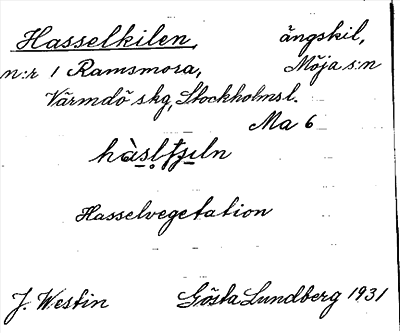 Hasselkilen, ängskil,
n:r 1 Ramsmora, Möja s:n
Värmdö skg, Stockholmsl.
Ma 6
Hasselvegetation
J. Westin Gösta Lundberg 1931